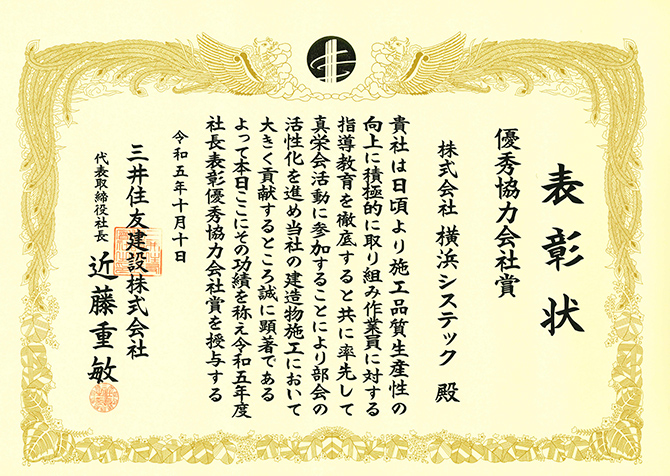 表彰状
優秀協力会社賞
株式会社 横浜システック 殿
貴社は日頃より施工品質生産性の
向上に積極的に取り組み作業員に対する
指導教育を徹底すると共に率先して
真栄会活動に参加することにより部会の
活性化を進め当社の建造物施工において
大きく貢献するところ誠に顕著である
よって本日ここにその功績を称え令和五年度
社長表彰優秀協力会社賞を授与する
令和五年十月十日
三井住友建設株式会社
代表取締役社長 近藤重敏